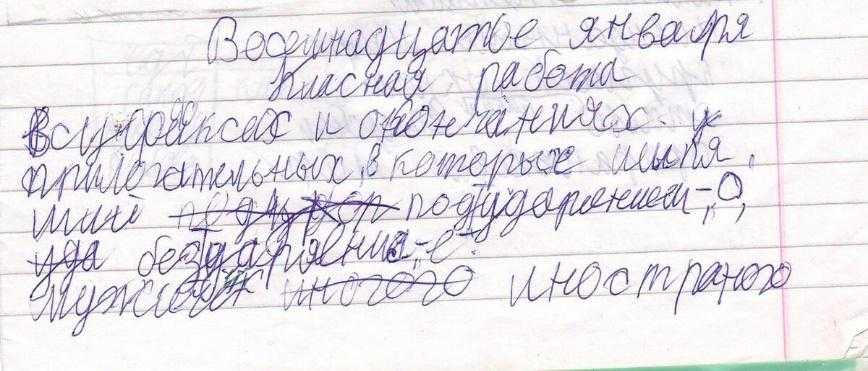 Восемнадцатое января
Класная работа
В суффиксах и окончаниях. и
прилогательных, в которых шипя,
щий подударением-,,О,,
без ударения,-е".
Мужской иностраного